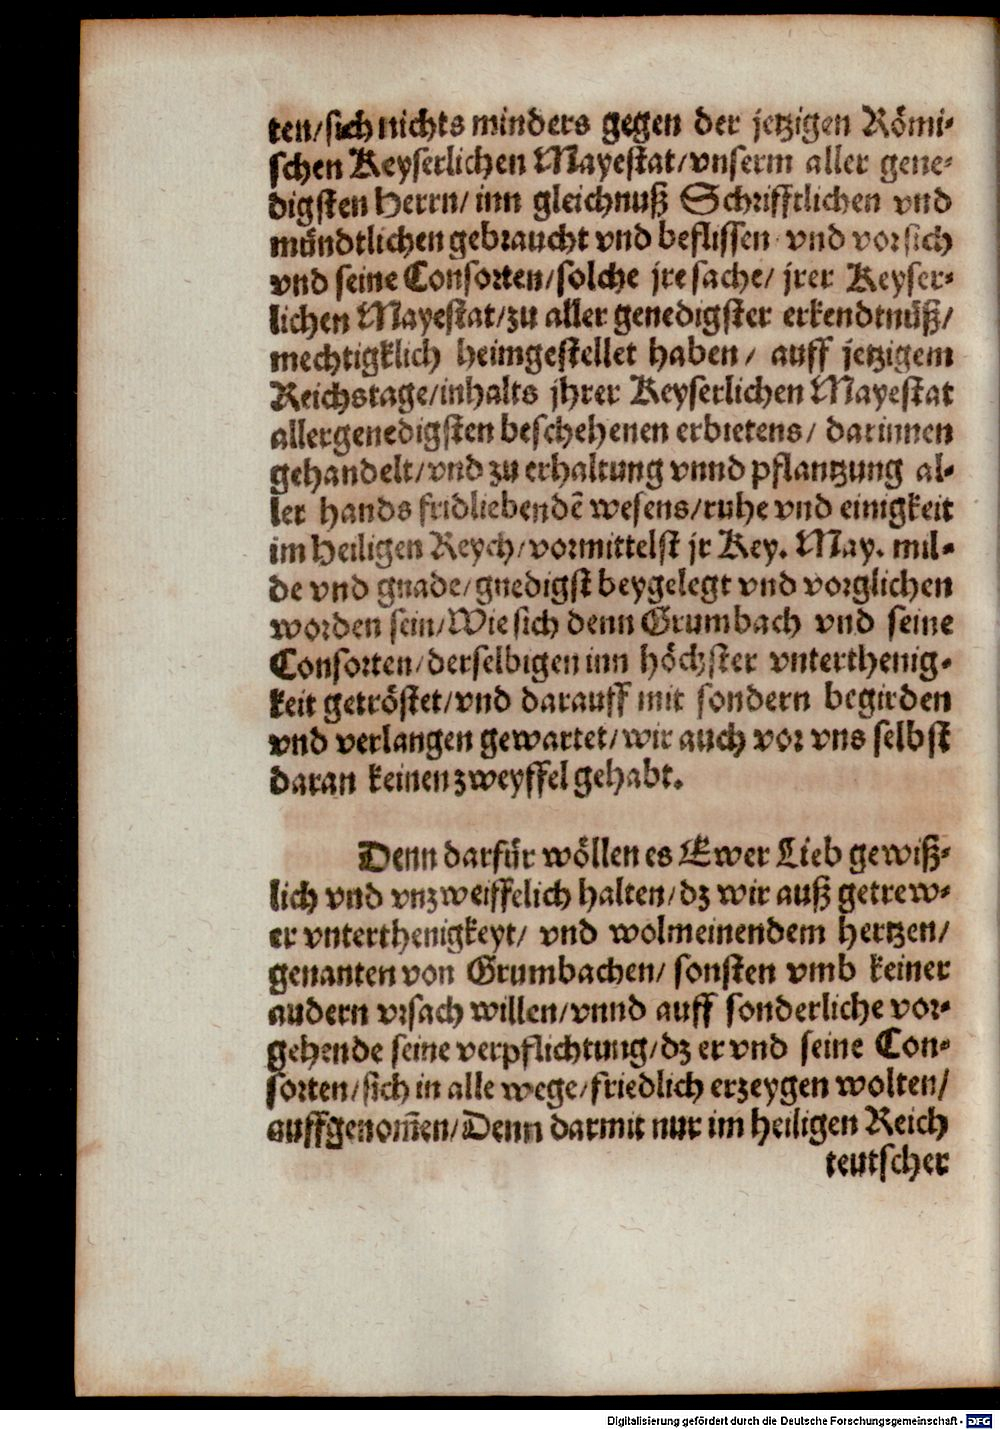 ten/sich nichts minders gegen der jetzigen Römi-
schen Keyserlichen Mayestat/vnserm aller gene-
digsten Herrn/ inn gleichnuß Schrifftlichen vnd
mündtlichen gebraucht vnd beflissen vnd vor sich
vnd seine Consorten/solche jre sache/ jrer Keyser-
lichen Mayestat/zu aller genedigster erkendtnüß/
mechtigklich heimgestellet haben/ auff jetzigem
Reichstage/inhalts jhrer Keyserlichen Mayestat
allergenedigsten beschehenen erbietens/ darinnen
gehandelt/vnd zu erhaltung vnnd pflantzung al-
ler hands fridliebendē wesens/ruhe vnd einigkeit
im Heiligen Reych/vormittelst jr Key. May. mil-
de vnd gnade/gnedigst beygelegt vnd vorglichen
worden sein/Wie sich denn Grumbach vnd seine
Consorten/derselbigen inn höchster vnterthenig-
keit getröstet/vnd darauff mit sondern begirden
vnd verlangen gewartet/wir auch vor vns selbst
daran keinen zweyffel gehabt.
Denn darfür wöllen es Ewer Lieb gewiß-
lich vnd vnzweiffelich halten/dz wir auß getrew-
er vnterthenigkeyt/ vnd wolmeinendem hertzen/
genanten von Grumbachen/ sonsten vmb keiner
andern vrsach willen/vnnd auff sonderliche vor-
gehende seine verpflichtung/dz er vnd seine Con-
sorten/sich in alle wege/friedlich erzeygen wolten/
auffgenom̄en/Denn darmit nur im heiligen Reich
teutscher
Digitalisierung gefördert durch die Deutsche Forschungsgemeinschaft - DFG